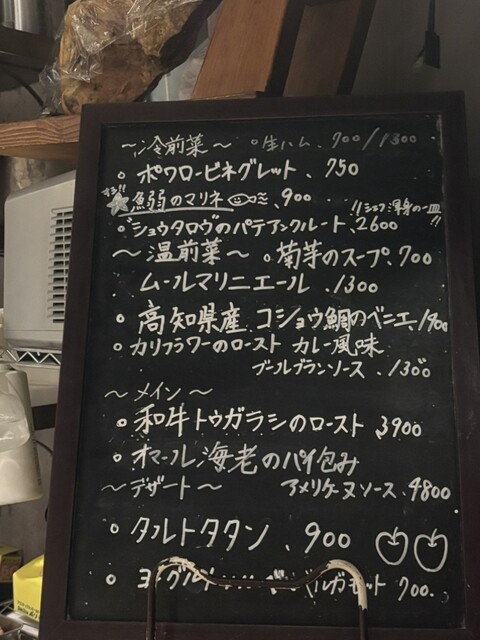 ～冷前菜～ ○生ハム、700/1300
○ポワロービネグレット、750
する!!
☆魚弱のマリネ 900
!!シェフ渾身の一皿!!
○ショウタロヴのパテアンクルート、2600
～温前菜～ ○菊芋のスープ、700
ムールマリニエール、1300
○高知県産 コショウ鯛のベニエ、1900
○カリフラワーのロースト カレー風味
ブールブランソース、1300
～メイン～
○和牛トウガラシのロースト 、3900
○オマール海老のパイ包み
～デザート～ アメリケーヌソース、4800
○タルトタタン、900
700.